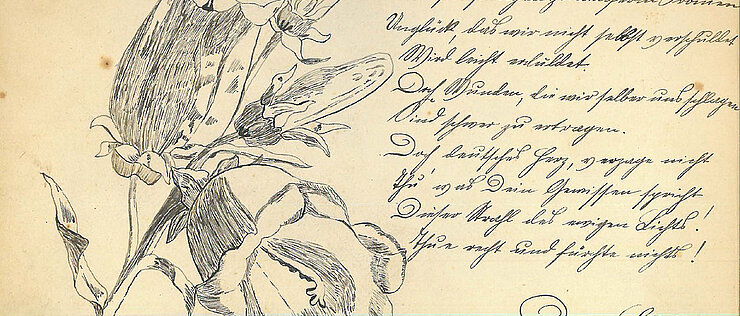 Unglück das wir nicht selbst verschuldet
Wird leicht erduldet.
Doch Wunden, die wir selber uns schlagen
Sind schwer zu ertragen.
Doch deutsches Herz, verzage nicht
Thu' was Dein Gewissen spricht
Dieser Strahl des ewigen Lichts!
Thue recht und fürchte nichts!